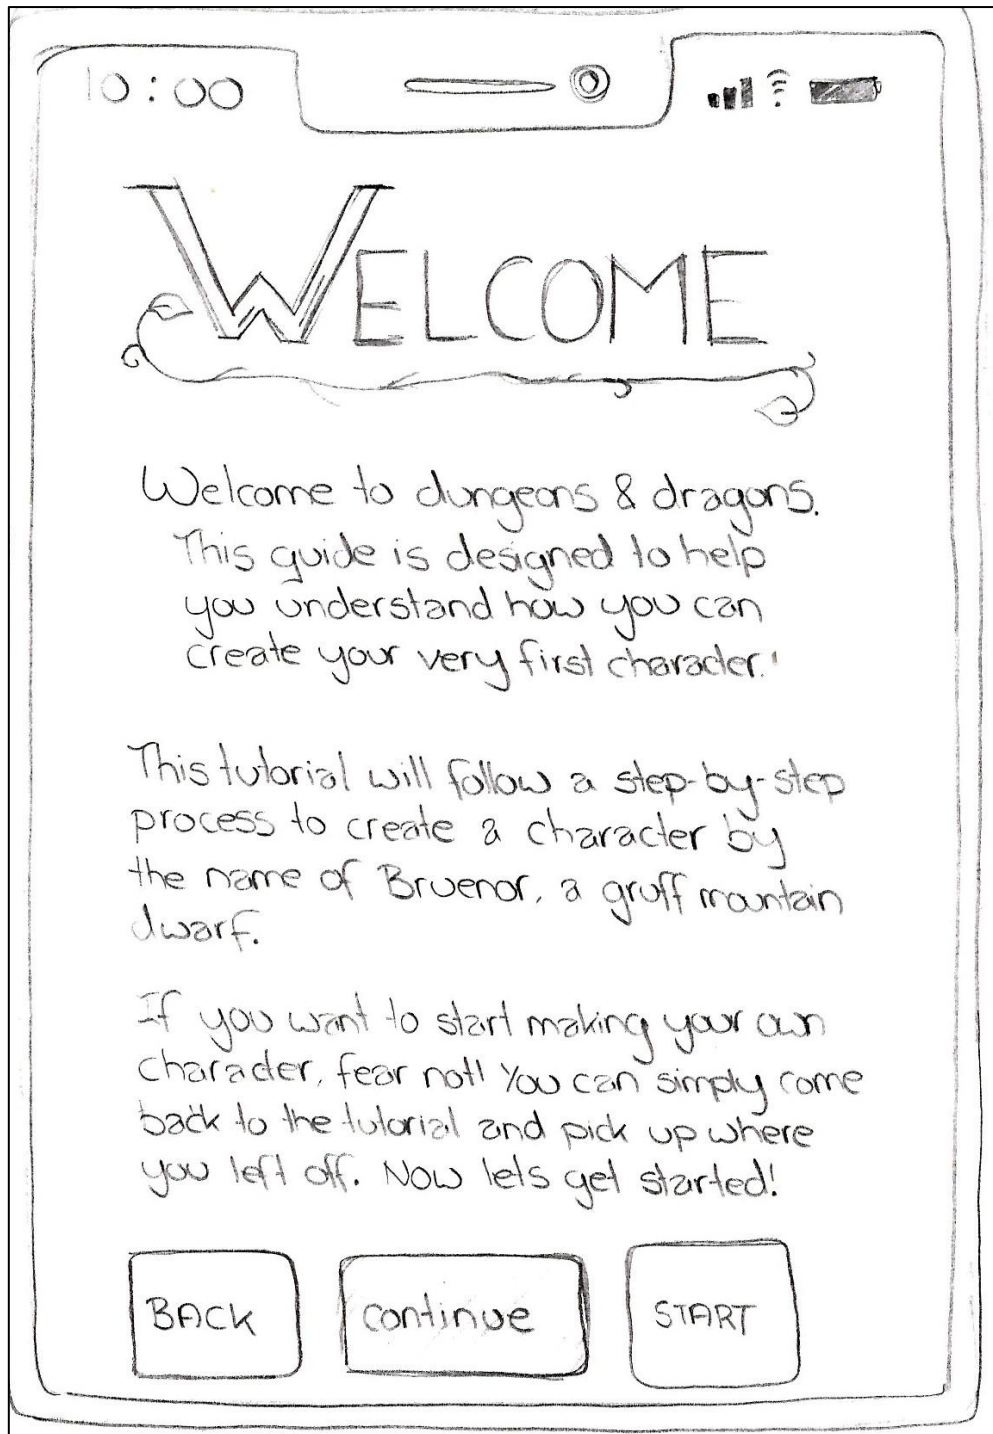 10:00
WELCOME
Welcome to dungeons & dragons.
This guide is designed to help
you understand how you can
create your very first character.
This tutorial will follow a step-by-step
process to create a character by
the name of Bruenor, a gruff mountain
dwarf.
If you want to start making your own
character, fear not! You can simply come
back to the tutorial and pick up where
you left off. Now lets get started!
BACK
continue
START